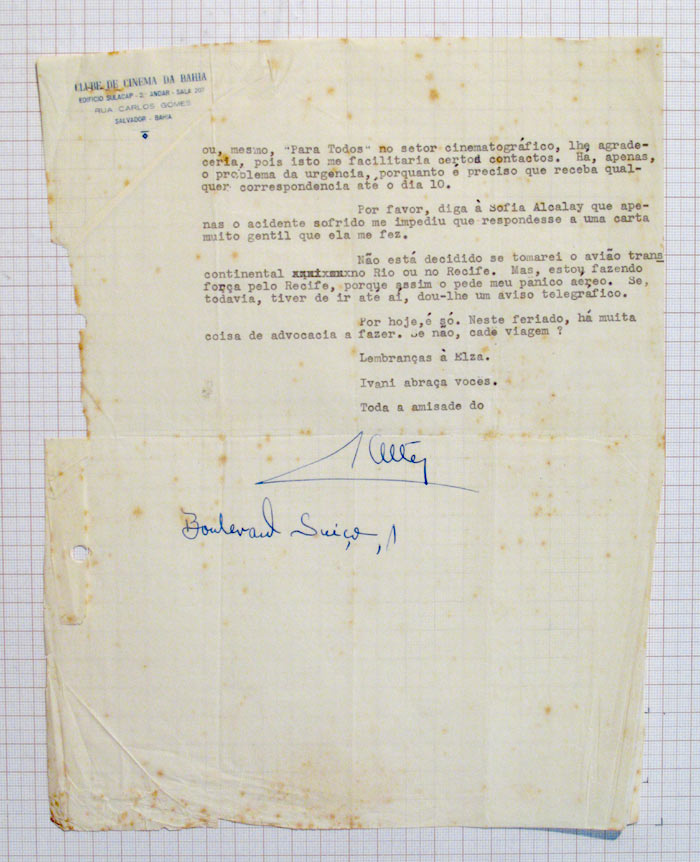 CLUBE DE CINEMA DA BAHIA
EDIFICIO SULACAP - 2.º ANDAR - SALA 207
RUA CARLOS GOMES
SALVADOR - BAHIA
ou, mesmo, "Para Todos" no setor cinematográfico, lhe agrade-
ceria, pois isto me facilitaria certos contactos. Há, apenas,
o problema da urgência, porquanto é preciso que receba qual-
quer correspondencia até o dia 10.
Por favor, diga à Sofia Alcalay que ape-
nas o acidente sofrido me impediu que respondesse a uma carta
muito gentil que ela me fez.
Não está decidido se tomarei o avião trans
continental no Rio ou no Recife. Mas, estou fazendo
força pelo Recife, porque assim o pede meu pânico aereo. Se,
todavia, tiver de ir até aí, dou-lhe um aviso telegráfico.
Por hoje, é só. Neste feriado, há muita
coisa de advocacia a fazer. Se não, cade viagem ?
Lembranças à Elza.
Ivani abraça voces.
Toda a amisade do
Boulevard Suiço, 1